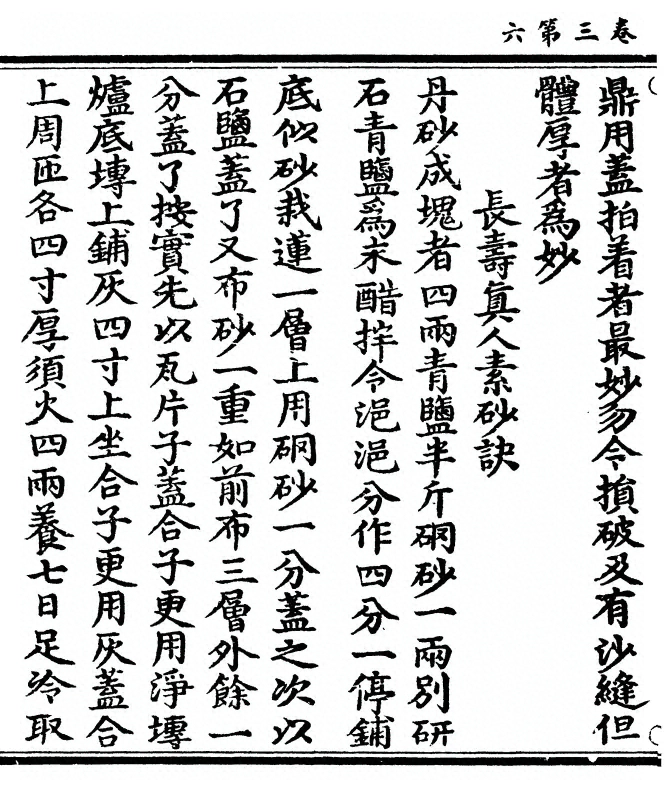 卷三第六
鼎用蓋拍着者最妙勿令損破及有沙縫但
體厚者為妙
長壽真人素砂訣
丹砂成塊者四兩青鹽半斤硇砂一兩別研
石青鹽為末醋拌令浥浥分作四分一停鋪
底似砂栽蓮一層上用硇砂一分蓋之次以
石鹽蓋了又布砂一重如前布三層外餘一
分蓋了按實先以瓦片子蓋合子更用淨塼
爐底塼上鋪灰四寸上坐合子更用灰蓋合
上周匝各四寸厚須火四兩養七日足冷取